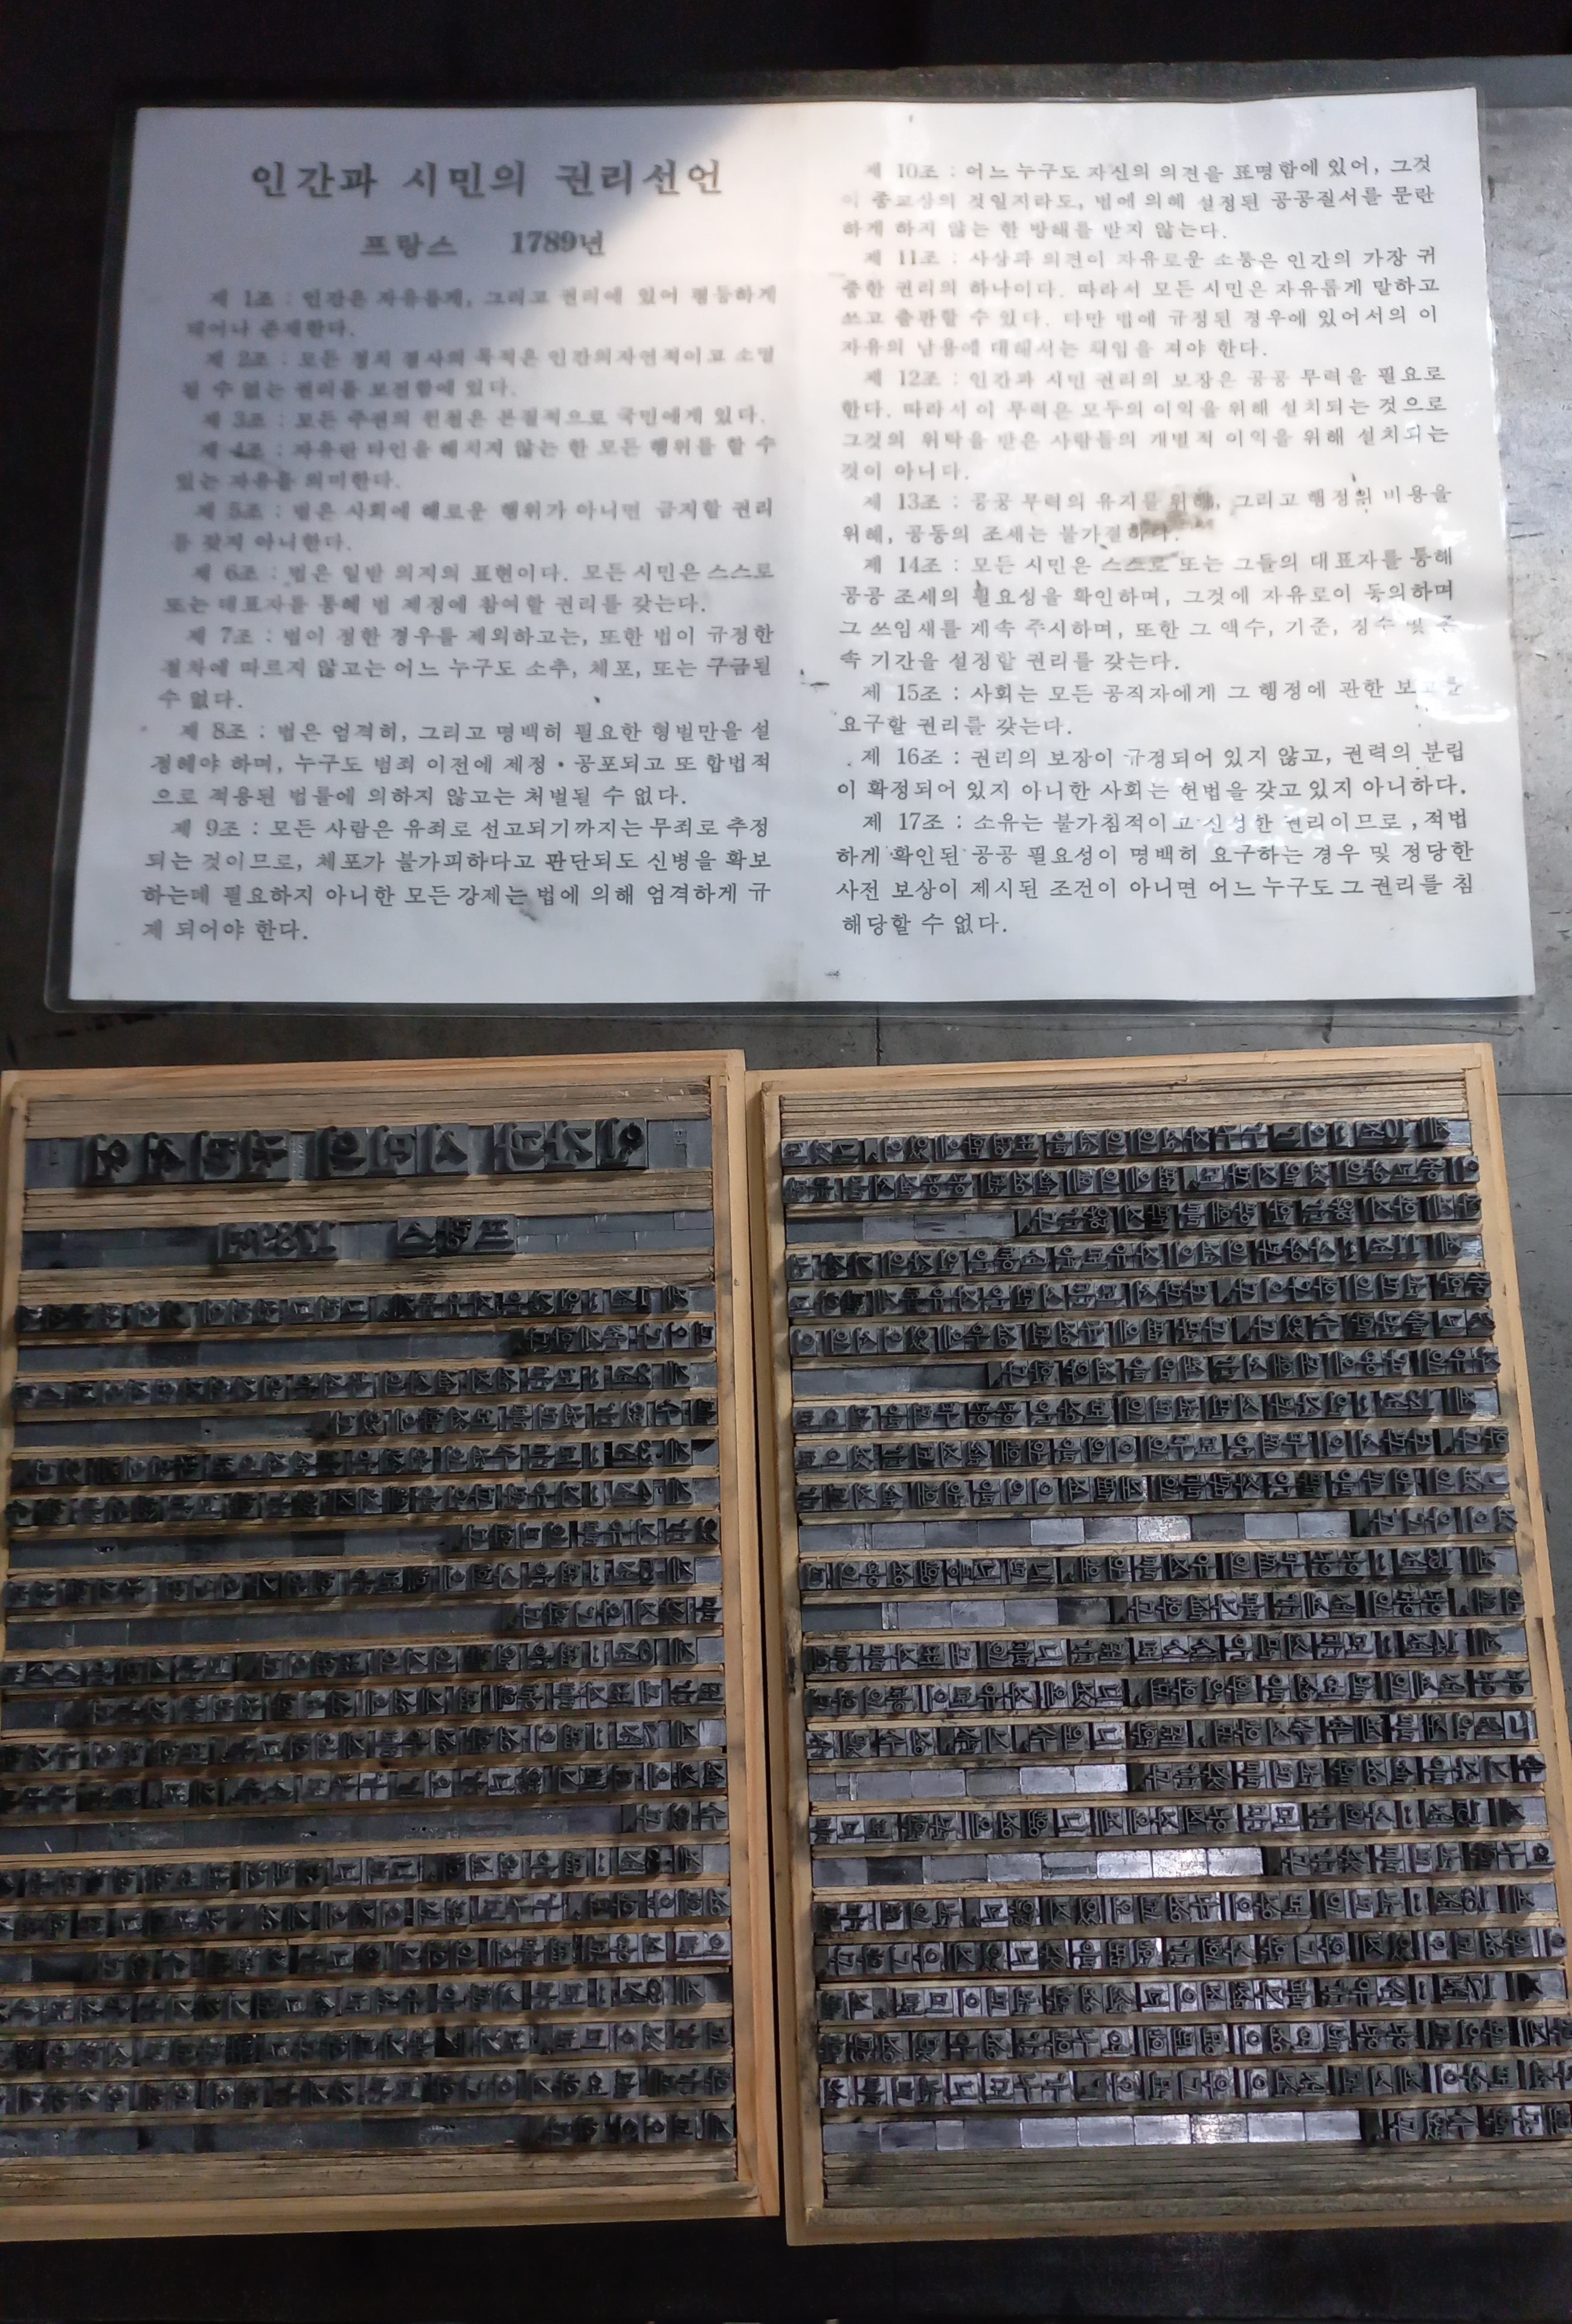 인간과 시민의 권리선언
프랑스 1789년
제 1조 : 인간은 자유롭게, 그리고 권리에 있어 평등하게
태어나 존재한다.
제 2조 : 모든 정치 결사의 목적은 인간의자연적이고 소멸
될 수 없는 권리를 보전함에 있다.
제 3조 : 모든 주권의 원천은 본질적으로 국민에게 있다.
제 4조 : 자유란 타인을 해치지 않는 한 모든 행위를 할 수
있는 자유를 의미한다.
제 5조 : 법은 사회에 해로운 행위가 아니면 금지할 권리
를 갖지 아니한다.
제 6조 : 법은 일반 의지의 표현이다. 모든 시민은 스스로
또는 대표자를 통해 법 제정에 참여할 권리를 갖는다.
제 7조 : 법이 정한 경우를 제외하고는, 또한 법이 규정한
절차에 따르지 않고는 어느 누구도 소추, 체포, 또는 구금될
수 없다.
제 8조 : 법은 엄격히, 그리고 명백히 필요한 형벌만을 설
정해야 하며, 누구도 범죄 이전에 제정·공포되고 또 합법적
으로 적용된 법률에 의하지 않고는 처벌될 수 없다.
제 9조 : 모든 사람은 유죄로 선고되기까지는 무죄로 추정
되는 것이므로, 체포가 불가피하다고 판단되도 신병을 확보
하는데 필요하지 아니한 모든 강제는 법에 의해 엄격하게 규
제 되어야 한다.
제 10조 : 어느 누구도 자신의 의견을 표명함에 있어, 그것
이 종교상의 것일지라도, 법에 의해 설정된 공공질서를 문란
하게 하지 않는 한 방해를 받지 않는다.
제 11조 : 사상과 의견이 자유로운 소통은 인간의 가장 귀
중한 권리의 하나이다. 따라서 모든 시민은 자유롭게 말하고
쓰고 출판할 수 있다. 다만 법에 규정된 경우에 있어서의 이
자유의 남용에 대해서는 책임을 져야 한다.
제 12조 : 인간과 시민 권리의 보장은 공공 무력을 필요로
한다. 따라서 이 무력은 모두의 이익을 위해 설치되는 것으로
그것의 위탁을 받은 사람들의 개별적 이익을 위해 설치되는
것이 아니다.
제 13조 : 공공 무력의 유지를 위해, 그리고 행정의 비용을
위해, 공동의 조세는 불가결하다.
제 14조 : 모든 시민은 스스로 또는 그들의 대표자를 통해
공공 조세의 필요성을 확인하며, 그것에 자유로이 동의하며
그 쓰임새를 계속 주시하며, 또한 그 액수, 기준, 징수 및 존
속 기간을 설정할 권리를 갖는다.
제 15조 : 사회는 모든 공직자에게 그 행정에 관한 보고를
요구할 권리를 갖는다.
제 16조 : 권리의 보장이 규정되어 있지 않고, 권력의 분립
이 확정되어 있지 아니한 사회는 헌법을 갖고 있지 아니하다.
제 17조 : 소유는 불가침적이고 신성한 권리이므로 ,적법
하게 확인된 공공 필요성이 명백히 요구하는 경우 및 정당한
사전 보상이 제시된 조건이 아니면 어느 누구도 그 권리를 침
해당할 수 없다.